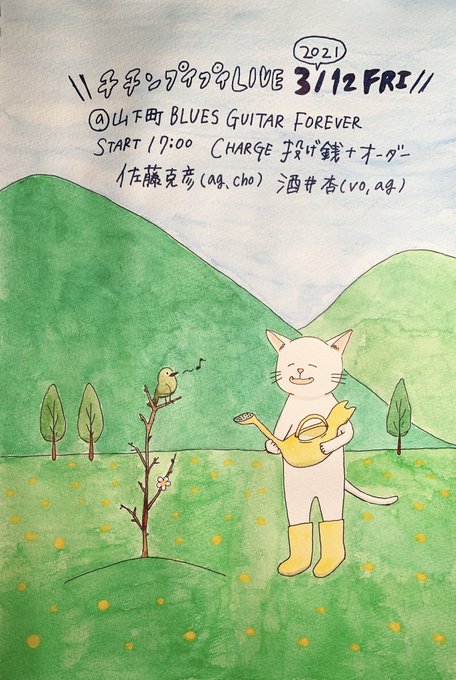 2021
\\ チチンプイプイLIVE 3/12 FRI //
@山下町 BLUES GUITAR FOREVER
START 17:00 CHARGE 投げ銭+オーダー
佐藤克彦(ag,cho) 酒井杏(vo,ag)